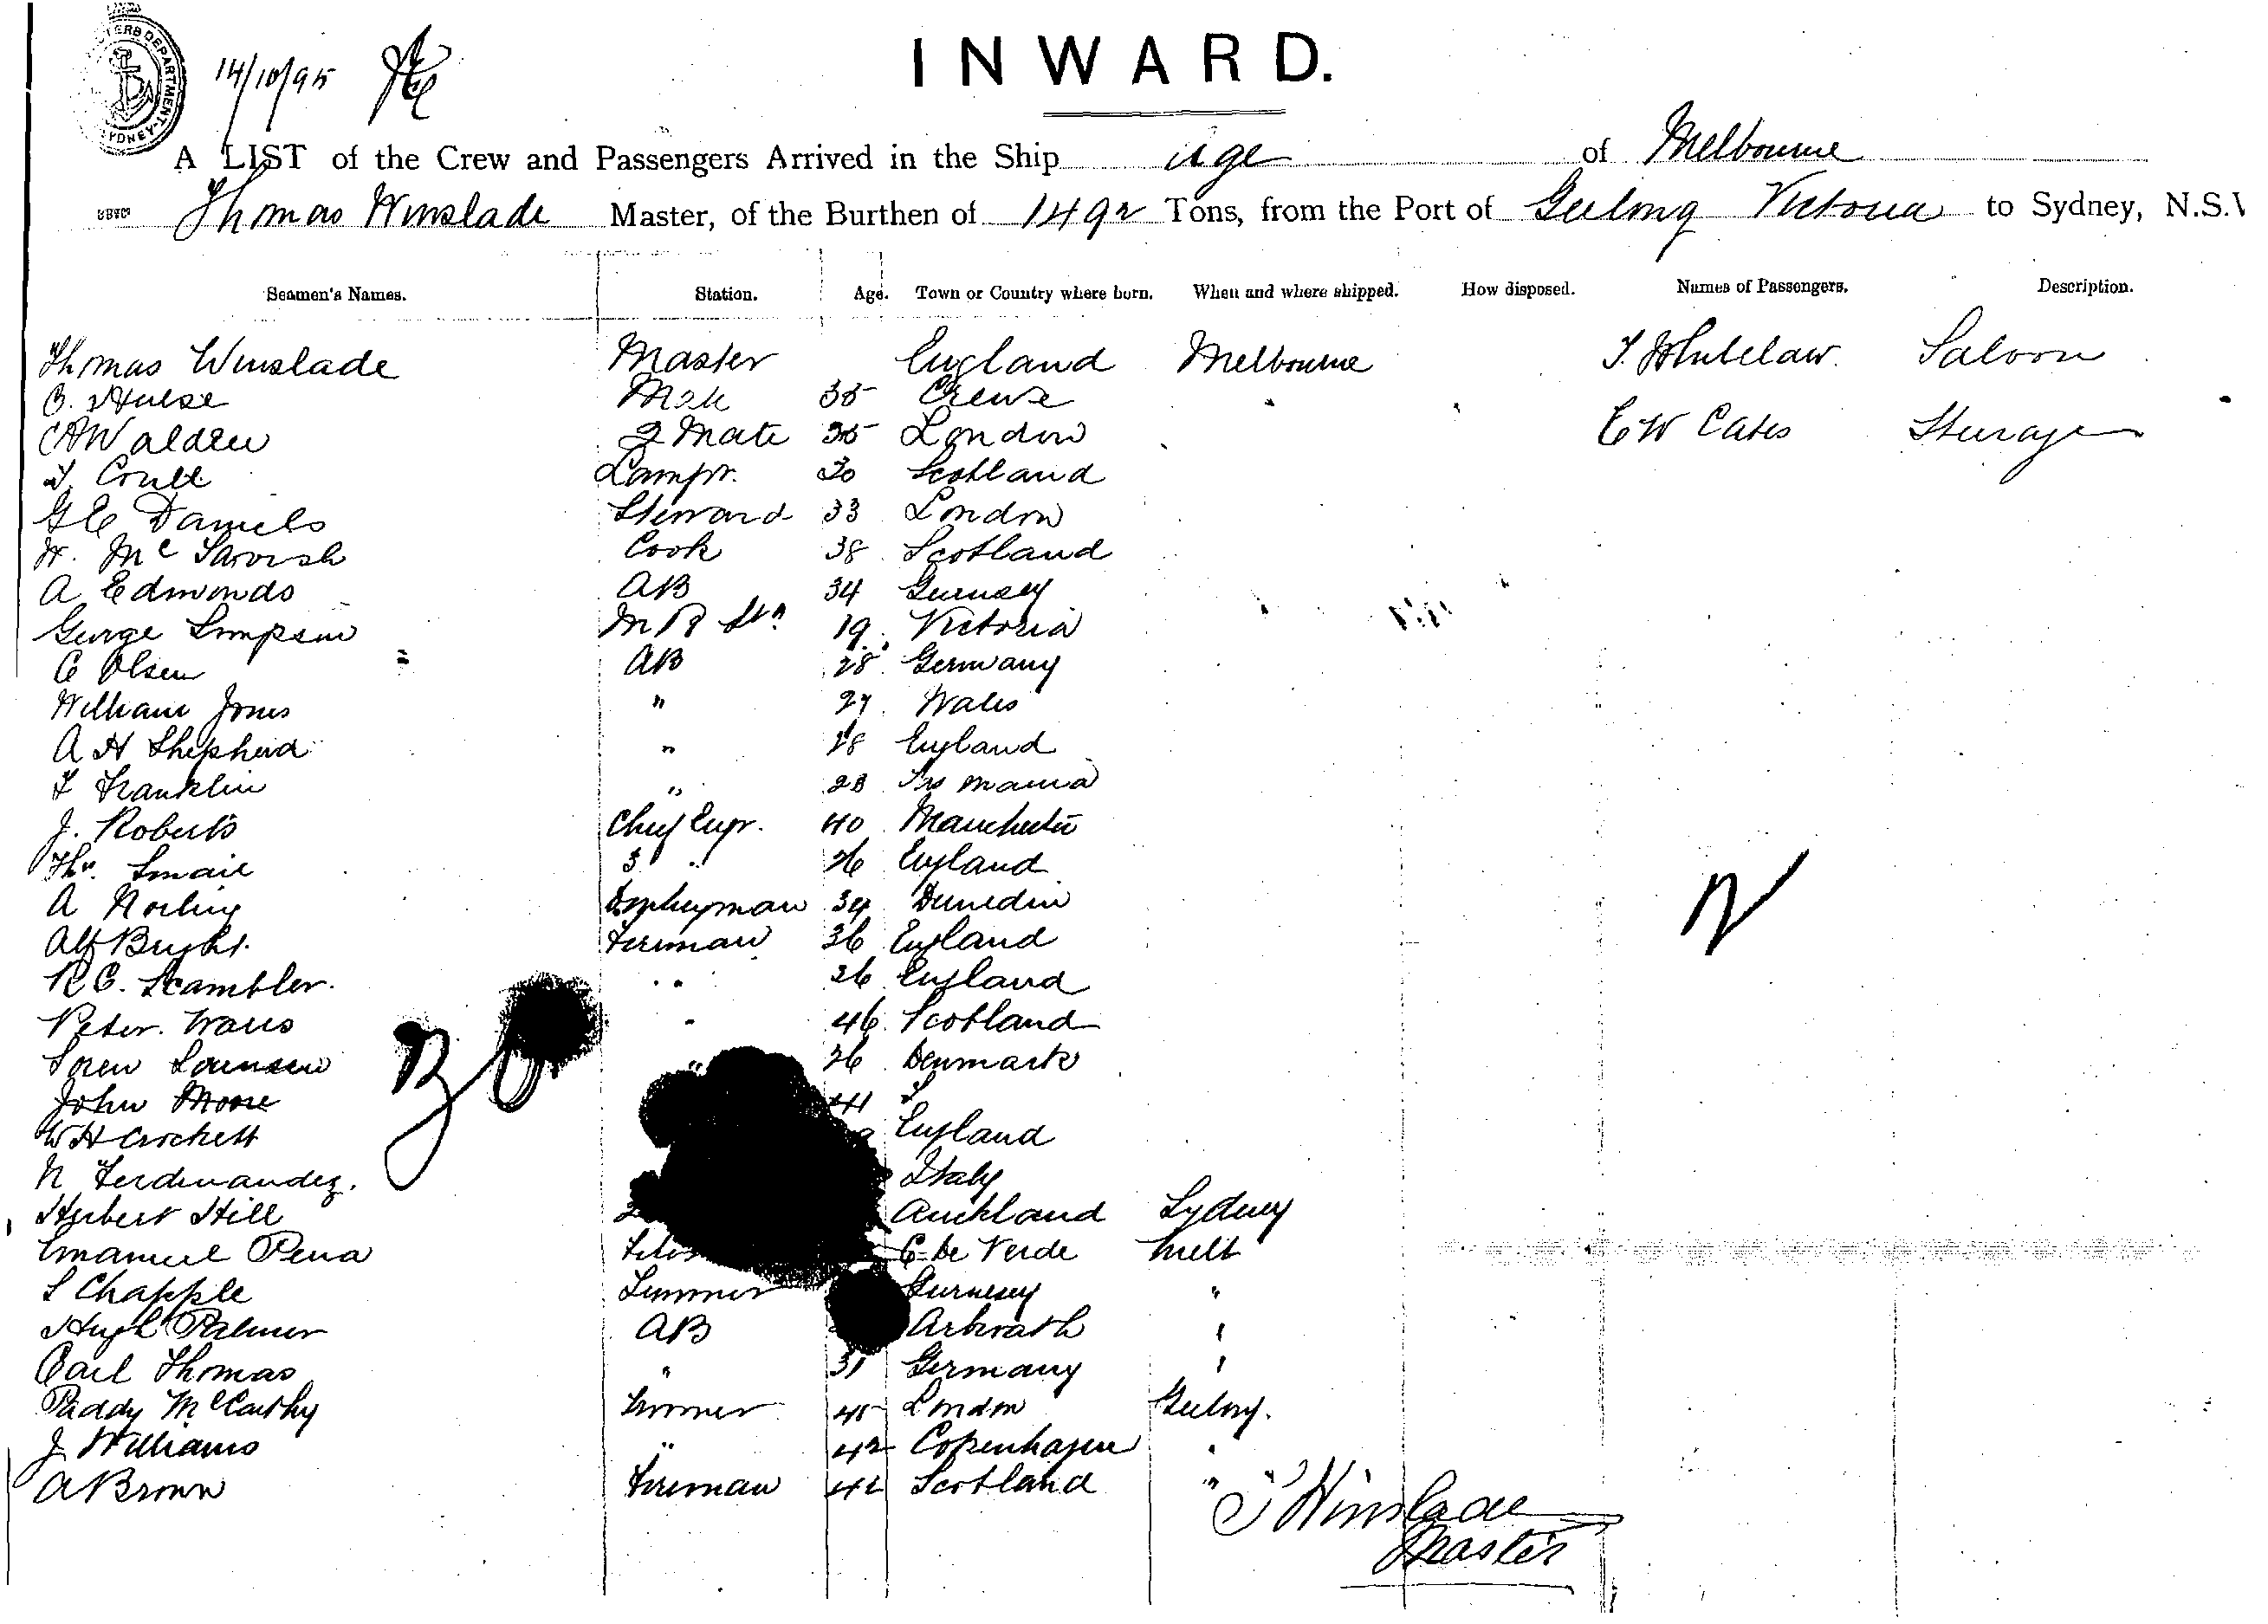 14/10/95
INWARD.
A LIST of the Crew and Passengers Arrived in the Ship Age of Melbourne
Thomas Winslade Master, of the Burthen of 1492 Tons, from the Port of Geelong Victoria to Sydney, N.S.
Seamen's Names. Station. Age. Town or Country where born. When and where shipped. How disposed. Names of Passengers. Description.
Thomas Winslade Master England Melbourne T. Whitelaw. Saloon
Hulse Mate 35 Crewe
Walden 2 Mate London E W Cates Steerage
Lampr. 30 Scotland
G E Daniels Steward 33 London
Mc Cook 38 Scotland
A Edmonds AB 34 Guernsey
George Simpson 19 Victoria
C Olsen AB 28 Germany
William Jones " 27 Wales
A H Shepherd " England
F Franklin " 28 Tasmania
J. Roberts Chief Engr. 40 Manchester
Thos. Smail 3 " 26 England
A Donkeyman 34 Dunedin
Alf Bright. Fireman 36 England
R C. Scambler. " 26 England
Peter. " 46 Scotland
Soren Sorensen 26 Denmark
John Moore 41
W H Crockett England
N Ferdinandez. Italy
Herbert Hill Auckland Sydney
Emanuel Pena C de Verde Melb
S Chapple Trimmer Guernsey "
Hugh Palmer AB Arbroath "
Carl Thomas " 31 Germany "
Paddy McCarthy Trimmer 45 London Geelong.
J Williams " 42 Copenhagen "
A Brown Fireman 42 Scotland "
T Winslade
Master